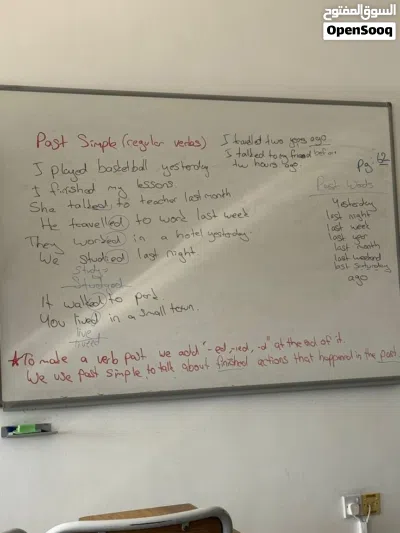 السوق المفتوح
OpenSooq
Past Simple (regular verbs)
I travelled two years ago.
I talked to my friend before
two hours ago.
Pg: 12
I played basketball yesterday
I finished my lessons.
She talked to teacher last month
He travelled to work last week
They worked in a hotel yesterday.
We studied last night.
Study
Studyied
It walked to park
You lived in a small town.
live
lived
Past Words
Yesterday
last night
last week
last year
last month
last weekend
last Saturday
ago
★To make a verb past we add "-ed, -ied, -d" at the end of it.
We use past simple to talk about finished actions that happened in the past.